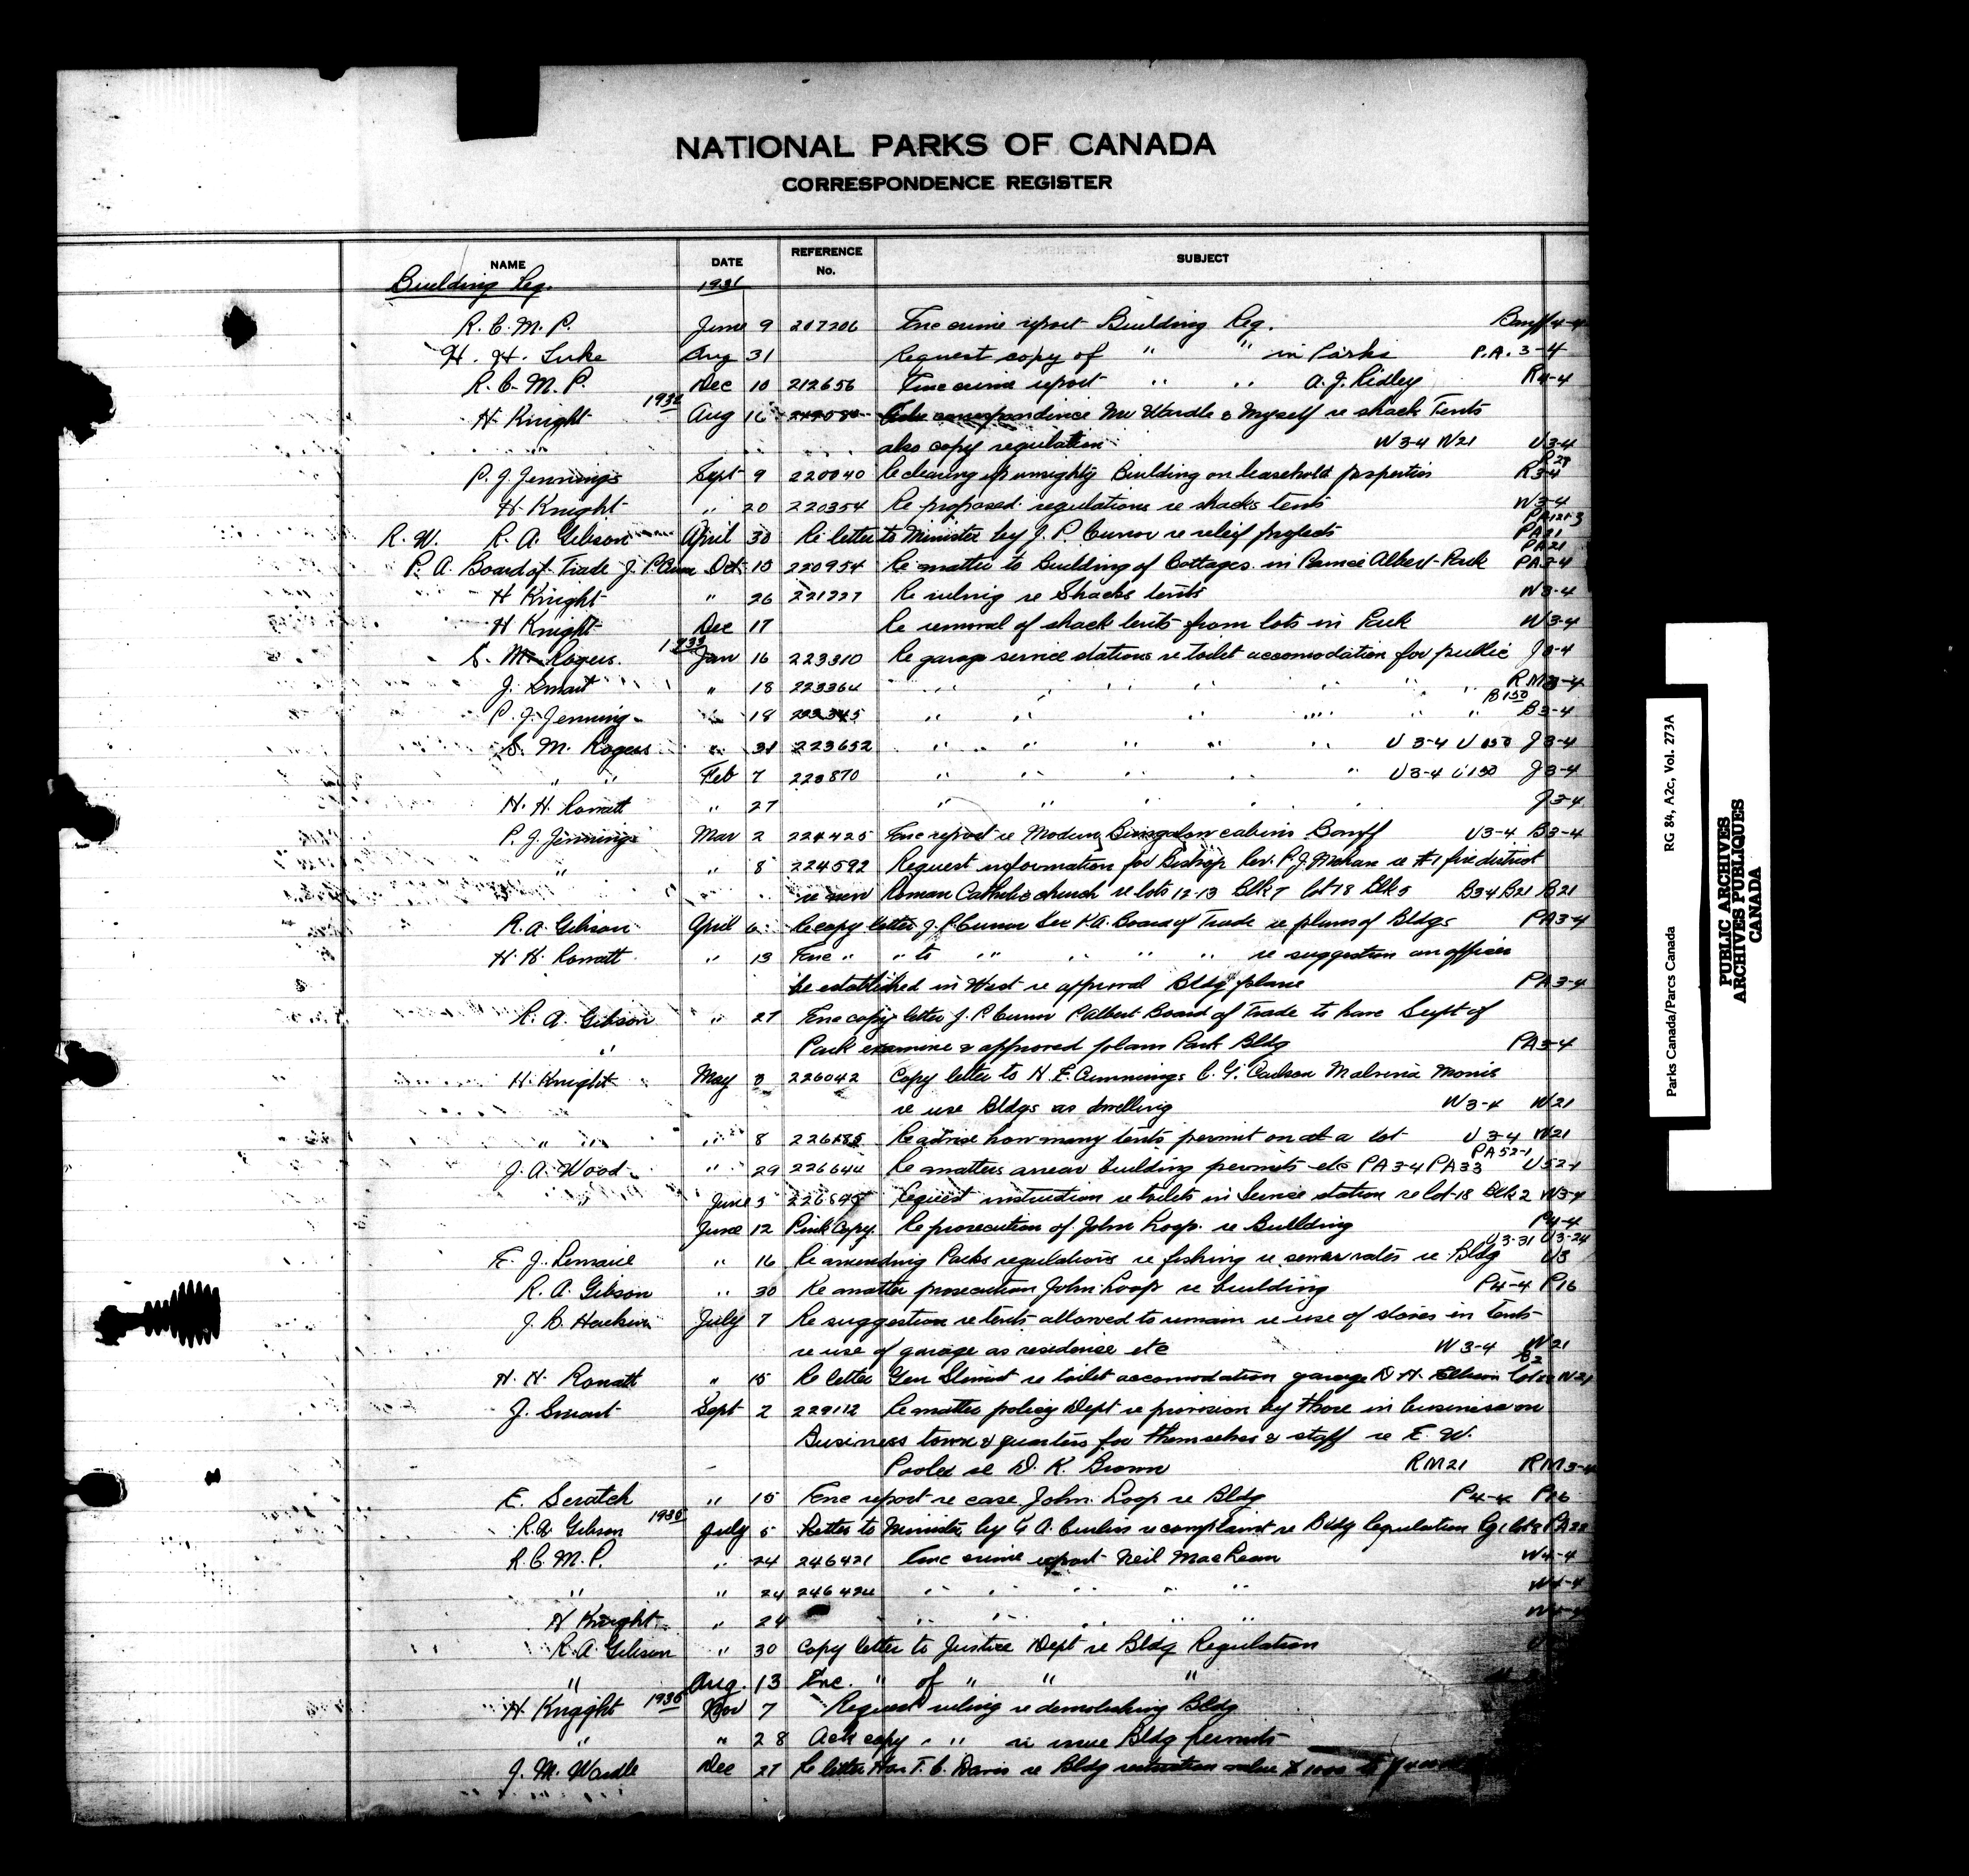 NATIONAL PARKS OF CANADA
CORRESPONDENCE REGISTER
NAME DATE REFERENCE No. SUBJECT
Building Reg. 1931
R.C.M.P. June 9 207206 Enc crime report Building Reg. Banff 4-4
H. H. Luke Aug 31 Request copy of " " in Parks P.A. 3-4
R.C.M.P. Dec 10 212656 Enc crime report " " A.J. Ridley R4-4
H. Knight 1932 Aug 16 correspondence Mr Wardle & Myself re shack Tents
" also copy regulation W3-4 W21 U3-4
P.J. Jennings Sept 9 220040 Re clearing up unsightly Building on leasehold properties R3-4 R29
H. Knight " 20 220354 Re proposed regulations re shacks tents W3-4
R.W. R.A. Gibson April 30 Re letter to Minister by J.P. Curror re relief projects PA21 PA121-3
P.A. Board of Trade J.P. Curror Oct 10 220954 Re matter to Building of Cottages in Prince Albert Park PA3-4 PA21
H Knight " 26 221227 Re ruling re Shacks tents W3-4
H Knight Dec 17 Re removal of shack tents from lots in Park W3-4
S. M. Rogers 1933 Jan 16 223310 Re garage service stations re toilet accomodation for public J3-4
J. Smart " 18 223364 " " " " " " " RM3-4
P.J. Jennings " 18 223345 " " " " " " B150 B3-4
S. M. Rogers " 31 223652 " " " " " U3-4 U150 J3-4
" " Feb 7 223870 " " " " " U3-4 U150 J3-4
H. H. Rowatt " 27 " " " " " " J3-4
P.J. Jennings Mar 2 224425 Enc report re Modern Bungalow cabins Banff U3-4 B3-4
" " 8 224592 Request information for Bishop Rev. P.J. re #1 fire district
re new Roman Catholic church re lots 12-13 Blk 7 lot 18 Blk 5 B34 B21 B21
R.A. Gibson April 6 Re copy letter J.P. Curror Sec P.A. Board of Trade re plans of Bldgs PA3-4
H. H. Rowatt " 13 Enc " " to " " " " re suggestion an officer
be established in West re approval Bldg plans PA3-4
R.A. Gibson " 27 Enc copy letter J.P. Curror P Albert Board of Trade to have Supt of
" Park examine & approved plans Park Bldg PA3-4
H. Knight May 3 226042 Copy letter to H.E. Cummings C.G. Carlson Malvina Morris
re use Bldgs as dwelling W3-4 W21
" " " 8 226185 Re advise how many tents permit on at a lot U3-4 W21
J.A. Wood " 29 226644 Re matters arrear building permits etc PA3-4 PA33 PA52-1 U52-1
" June 3 226845 Request instruction re toilets in Service station re lot 18 Blk 2 W3-4
June 12 Pink Copy Re prosecution of John Loop re Building P4-4
E. J. Lemaire " 16 Re amending Parks regulations re fishing re sewer rates re Bldg U3-31 U3-24 U3
R.A. Gibson " 30 Re matter prosecution John Loop re building P4-4 P16
J.B. Harkin July 7 Re suggestion re tents allowed to remain re use of stoves in tents
re use of garage as residence etc W3-4 W21
H. H. Rowatt " 15 Re letter Gen Stewart re toilet accomodation garage D.H. Ellison
J. Smart Sept 2 229112 Re matter policy Dept re provision by those in business on
Business town & quarters for themselves & staff re E. W.
Poole re D. K. Brown RM21 RM3-4
E. Scratch " 15 Enc report re case John Loop re Bldg P4-4 P16
R.A. Gibson 1935 July 5 Letter to Minister by re complaint re Bldg Regulation
R.C.M.P. " 24 246421 Enc crime report Neil MacLean W4-4
" " 24 246424 " " " " " W4-4
H Knight " 24 " " " " " W4-4
R.A. Gibson " 30 Copy letter to Justice Dept re Bldg Regulation
" Aug. 13 Enc. " of " " "
H Knight 1935 Nov 7 Request ruling re demolishing Bldg
" " 28 Ack copy " " re issue Bldg permits
J. M. Wardle Dec 27 Re letter Hon T.C. Davis re Bldg restriction value $1000 to
Parks Canada/Parcs Canada RG 84, A2c, Vol. 273A
PUBLIC ARCHIVES
ARCHIVES PUBLIQUES
CANADA